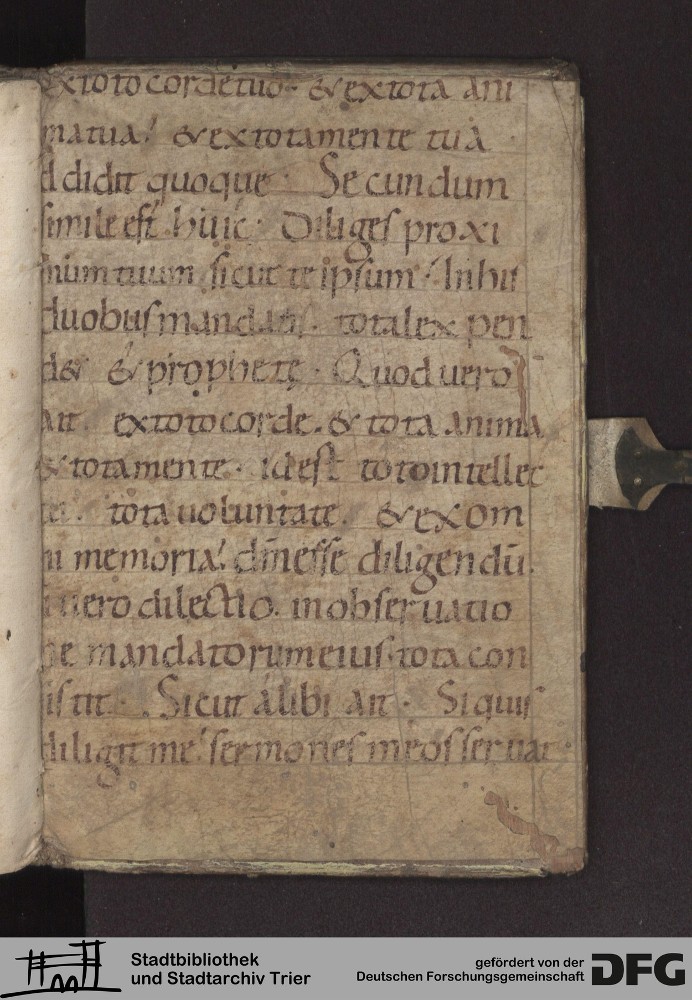 ex toto corde tuo· & ex tota ani
matua! & ex tota mente tua
ddidit quoque· Secundum
simile est huic· Diliges proxi
mum tuum sicut te ipsum! In his
duobus mandatis· tota lex pen
d& & prophetę· Quod uero
ait ex toto corde. & tota anima
& tota mente· id est toto intellec
tota uoluntate. & ex om
ni memoria! dm̄ esse diligendū.
uero dilectio. in obseruatio
ne mandatorum eius· tota con
istit· Sicut alibi ait· Siquis
diligit me! sermones meos seruat·
Stadtbibliothek
und Stadtarchiv Trier
gefördert von der
Deutschen Forschungsgemeinschaft
DFG